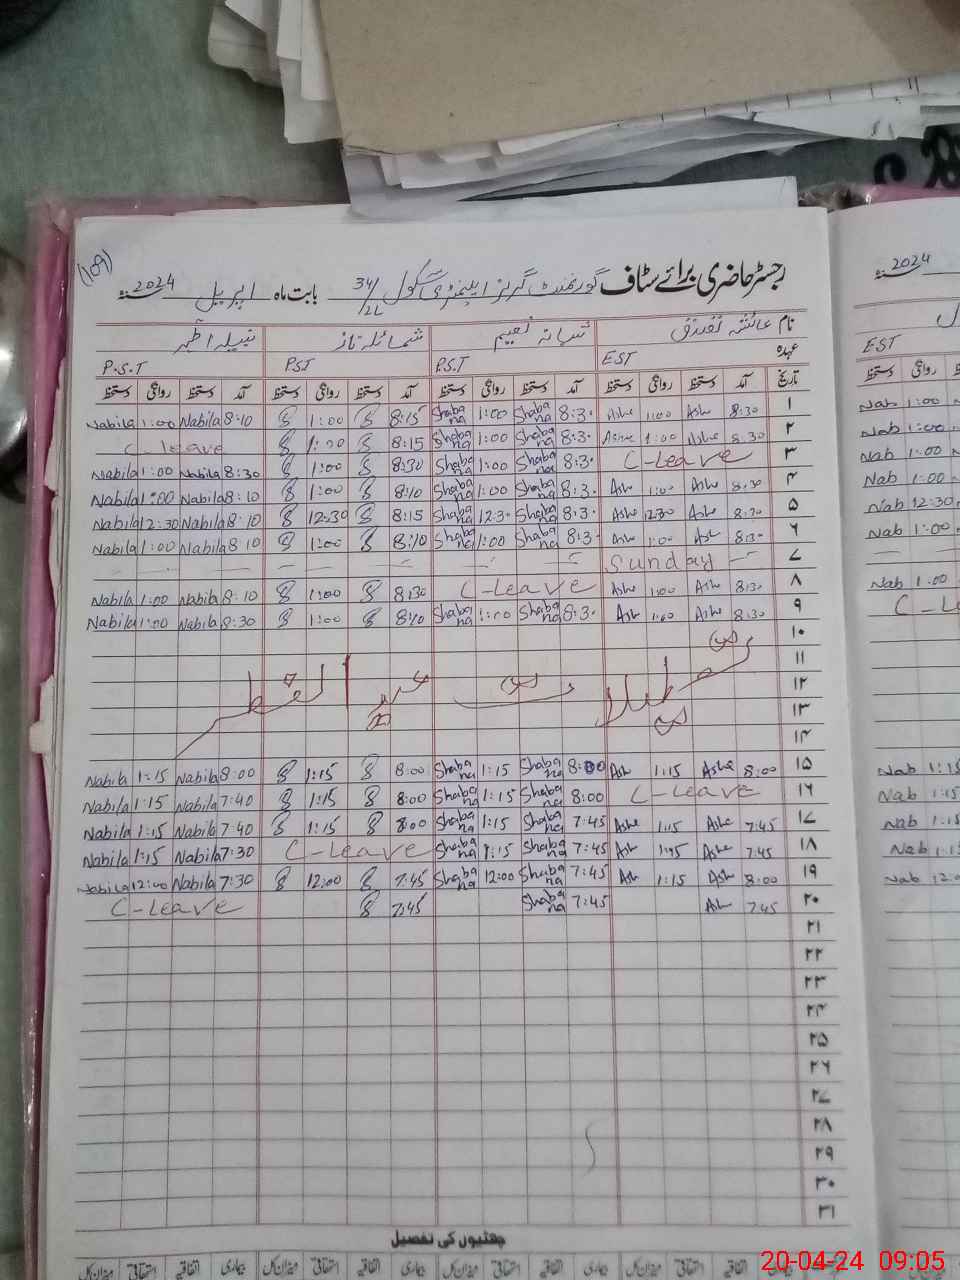 (109)
رجسٹر حاضری برائے سٹاف گورنمنٹ گرلز ایلیمنٹری سکول 34/2L بابت ماہ اپریل 2024
نام عائشہ شبانہ نعیم شمائلہ ناز نبیلہ
عہدہ EST P.S.T PST P.S.T
تاریخ آمد دستخط روانگی دستخط آمد دستخط روانگی دستخط آمد دستخط روانگی دستخط آمد دستخط روانگی دستخط
Nabila 1:00 Nabila 8:10 1:00 8:15 Shabana 1:00 Shabana 8:30 Ashe 1:00 Ashe 8:30 ۱
C-leave 1:00 8:15 Shabana 1:00 Shabana 8:30 Ashe 1:00 Ashe 8:30 ۲
Nabila 1:00 Nabila 8:30 1:00 8:30 Shabana 1:00 Shabana 8:30 C-leave ۳
Nabila 1:00 Nabila 8:10 1:00 8:10 Shabana 1:00 Shabana 8:30 Ashe 1:00 Ashe 8:30 ۴
Nabila 12:30 Nabila 8:10 12:30 8:15 Shabana 12:30 Shabana 8:30 Ashe 12:30 Ashe 8:30 ۵
Nabila 1:00 Nabila 8:10 1:00 8:10 Shabana 1:00 Shabana 8:30 Ashe 1:00 Ashe 8:30 ۶
Sunday ۷
Nabila 1:00 Nabila 8:10 1:00 8:30 C-leave Ashe 1:00 Ashe 8:30 ۸
Nabila 1:00 Nabila 8:30 1:00 8:10 Shabana 1:00 Shabana 8:30 Ashe 1:00 Ashe 8:30 ۹
۱۰
۱۱
تعطیلات عید الفطر ۱۲
۱۳
۱۴
Nabila 1:15 Nabila 8:00 1:15 8:00 Shabana 1:15 Shabana 8:00 Ash 1:15 Ashe 8:00 ۱۵
Nabila 1:15 Nabila 7:40 1:15 8:00 Shabana 1:15 Shabana 8:00 C-leave ۱۶
Nabila 1:15 Nabila 7:40 1:15 8:00 Shabana 1:15 Shabana 7:45 Ashe 1:15 Ashe 7:45 ۱۷
Nabila 1:15 Nabila 7:30 C-leave Shabana 1:15 Shabana 7:45 Ash 1:45 Ashe 7:45 ۱۸
Nabila 12:00 Nabila 7:30 12:00 7:45 Shabana 12:00 Shabana 7:45 Ash 1:15 Ash 8:00 ۱۹
C-leave 7:45 Shabana 7:45 Ash 7:45 ۲۰
۲۱
۲۲
۲۳
۲۴
۲۵
۲۶
۲۷
۲۸
۲۹
۳۰
۳۱
چھٹیوں کی تفصیل
بیماری اتفاقیہ استحقاقی میزان کل بیماری اتفاقیہ استحقاقی میزان کل بیماری اتفاقیہ استحقاقی میزان کل بیماری اتفاقیہ استحقاقی میزان کل
2024
EST
دستخط روانگی دستخط
Nab 1:00 Nab
Nab 1:00
Nab 1:00
Nab 1:00
Nab 12:30
Nab 1:00
Nab 1:00
Nab 1:15
Nab 1:15
Nab 1:15
Nab 1:15
20-04-24 09:05